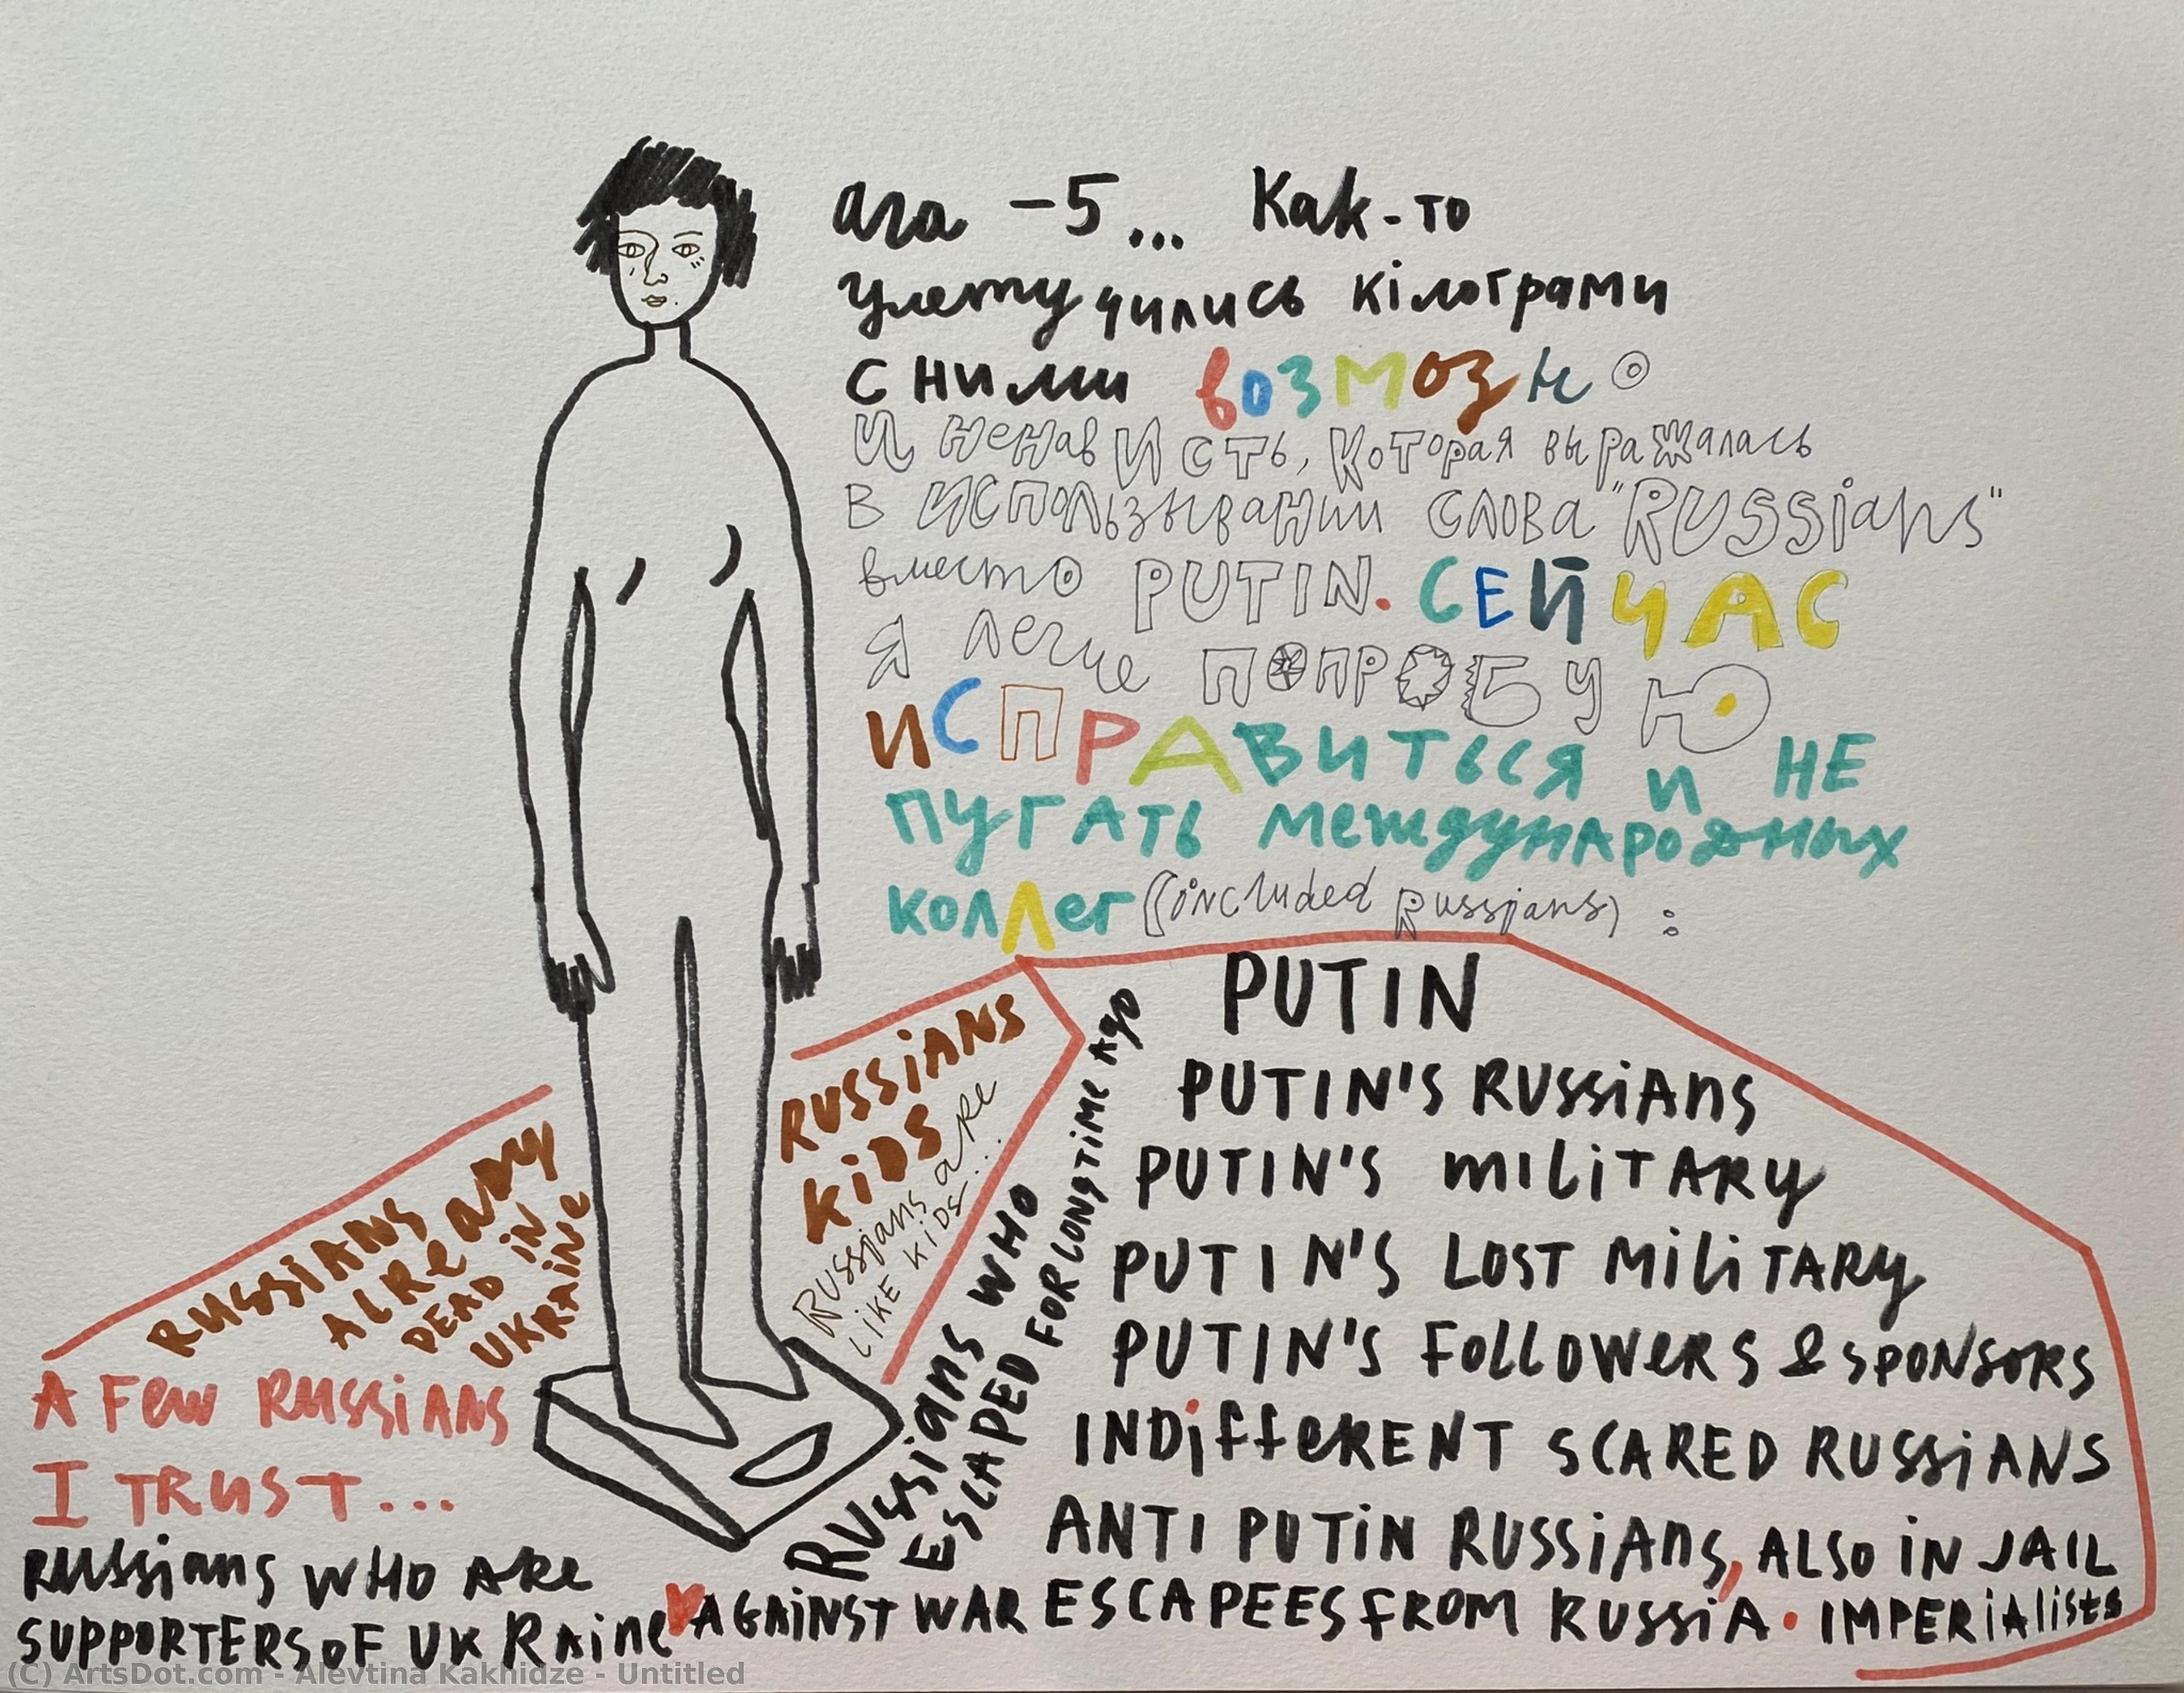 ага -5... Как-то
улетучились кілограми
с ними возможно
и ненависть, которая выражалась
в использывании слова "RUSSians"
вместо PUTIN. СЕЙЧАС
я легче попробую
ИСПРАВИТЬСЯ и НЕ
ПУГАТЬ международных
коллег (included Russians) :
RUSSIANS
KiDS
Russians are
LIKE KIDS...
PUTIN
PUTIN'S RUSSiANS
PUTIN'S MILITARY
PUTIN'S LOST MILITARY
PUTIN'S FOLLOWERS & SPONSORS
INDiffeRENT SCARED RUSSiANS
ANTI PUTIN RUSSiANS, ALSO iN JAIL
RUSSIANS WHO
ESCAPED FOR LONG TIME AGO
RUSSIANS
ALREADY
DEAD iN
UKRAINE
A Few RUSSiANS
I TRUST...
RUSSians WHO ARe
SUPPORTERS OF UKRAiNe
AGAiNST WAR ESCAPEES FROM RUSSiA. IMPERiAlists
(C) ArtsDot.com - Alevtina Kakhidze - Untitled